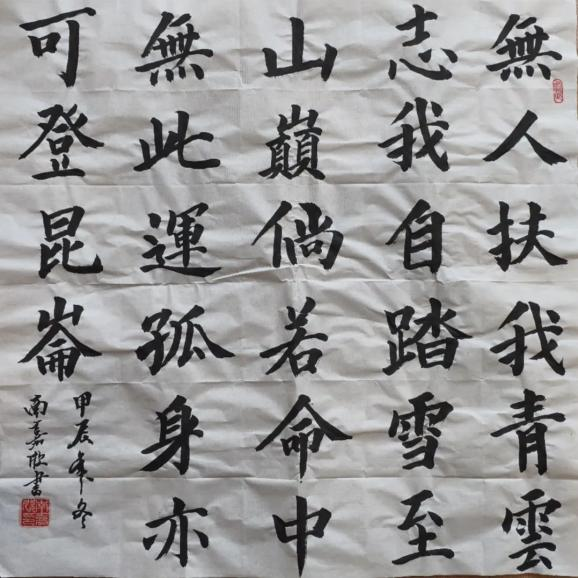 無人扶我青雲
志我自踏雪至
山巔倘若命中
無此運孤身亦
可登昆崙
甲辰年冬
南嘉欣書